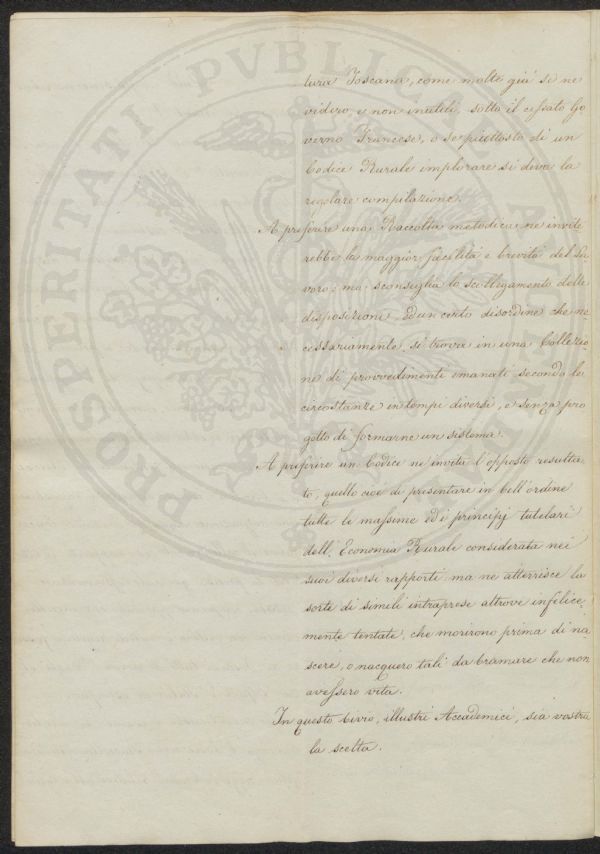 tura Toscana, come molte già se ne
videro, e non inutili, sotto il cessato Go
verno Francese, o se piuttosto di un
Codice Rurale implorare si deva la
regolare compilazione.
A preferire una Raccolta metodica ne invite
rebbe la maggior facilità e brevità del La
voro; ma sconsiglia lo scollegamento delle
disposizioni, ed un certo disordine che ne
cessariamente si trova in una Collezio
ne di provvedimenti emanati secondo le
circostanze in tempi diversi, e senza pro
getto di formarne un sistema.
A preferire un Codice ne invita l'opposto resulta
to, quello cioè di presentare in bell'ordine
tutte le massime ed i principj tutelari
dell'Economia Rurale considerata nei
suoi diversi rapporti: ma ne atterrisce la
sorte di simili intraprese altrove infelice
mente tentate, che morirono prima di na
scere, o nacquero tali da bramare che non
avessero vita.
In questo bivio, illustri Accademici, sia vostra
la scelta.
PROSPERITATI PVBLICAE AVGENDAE